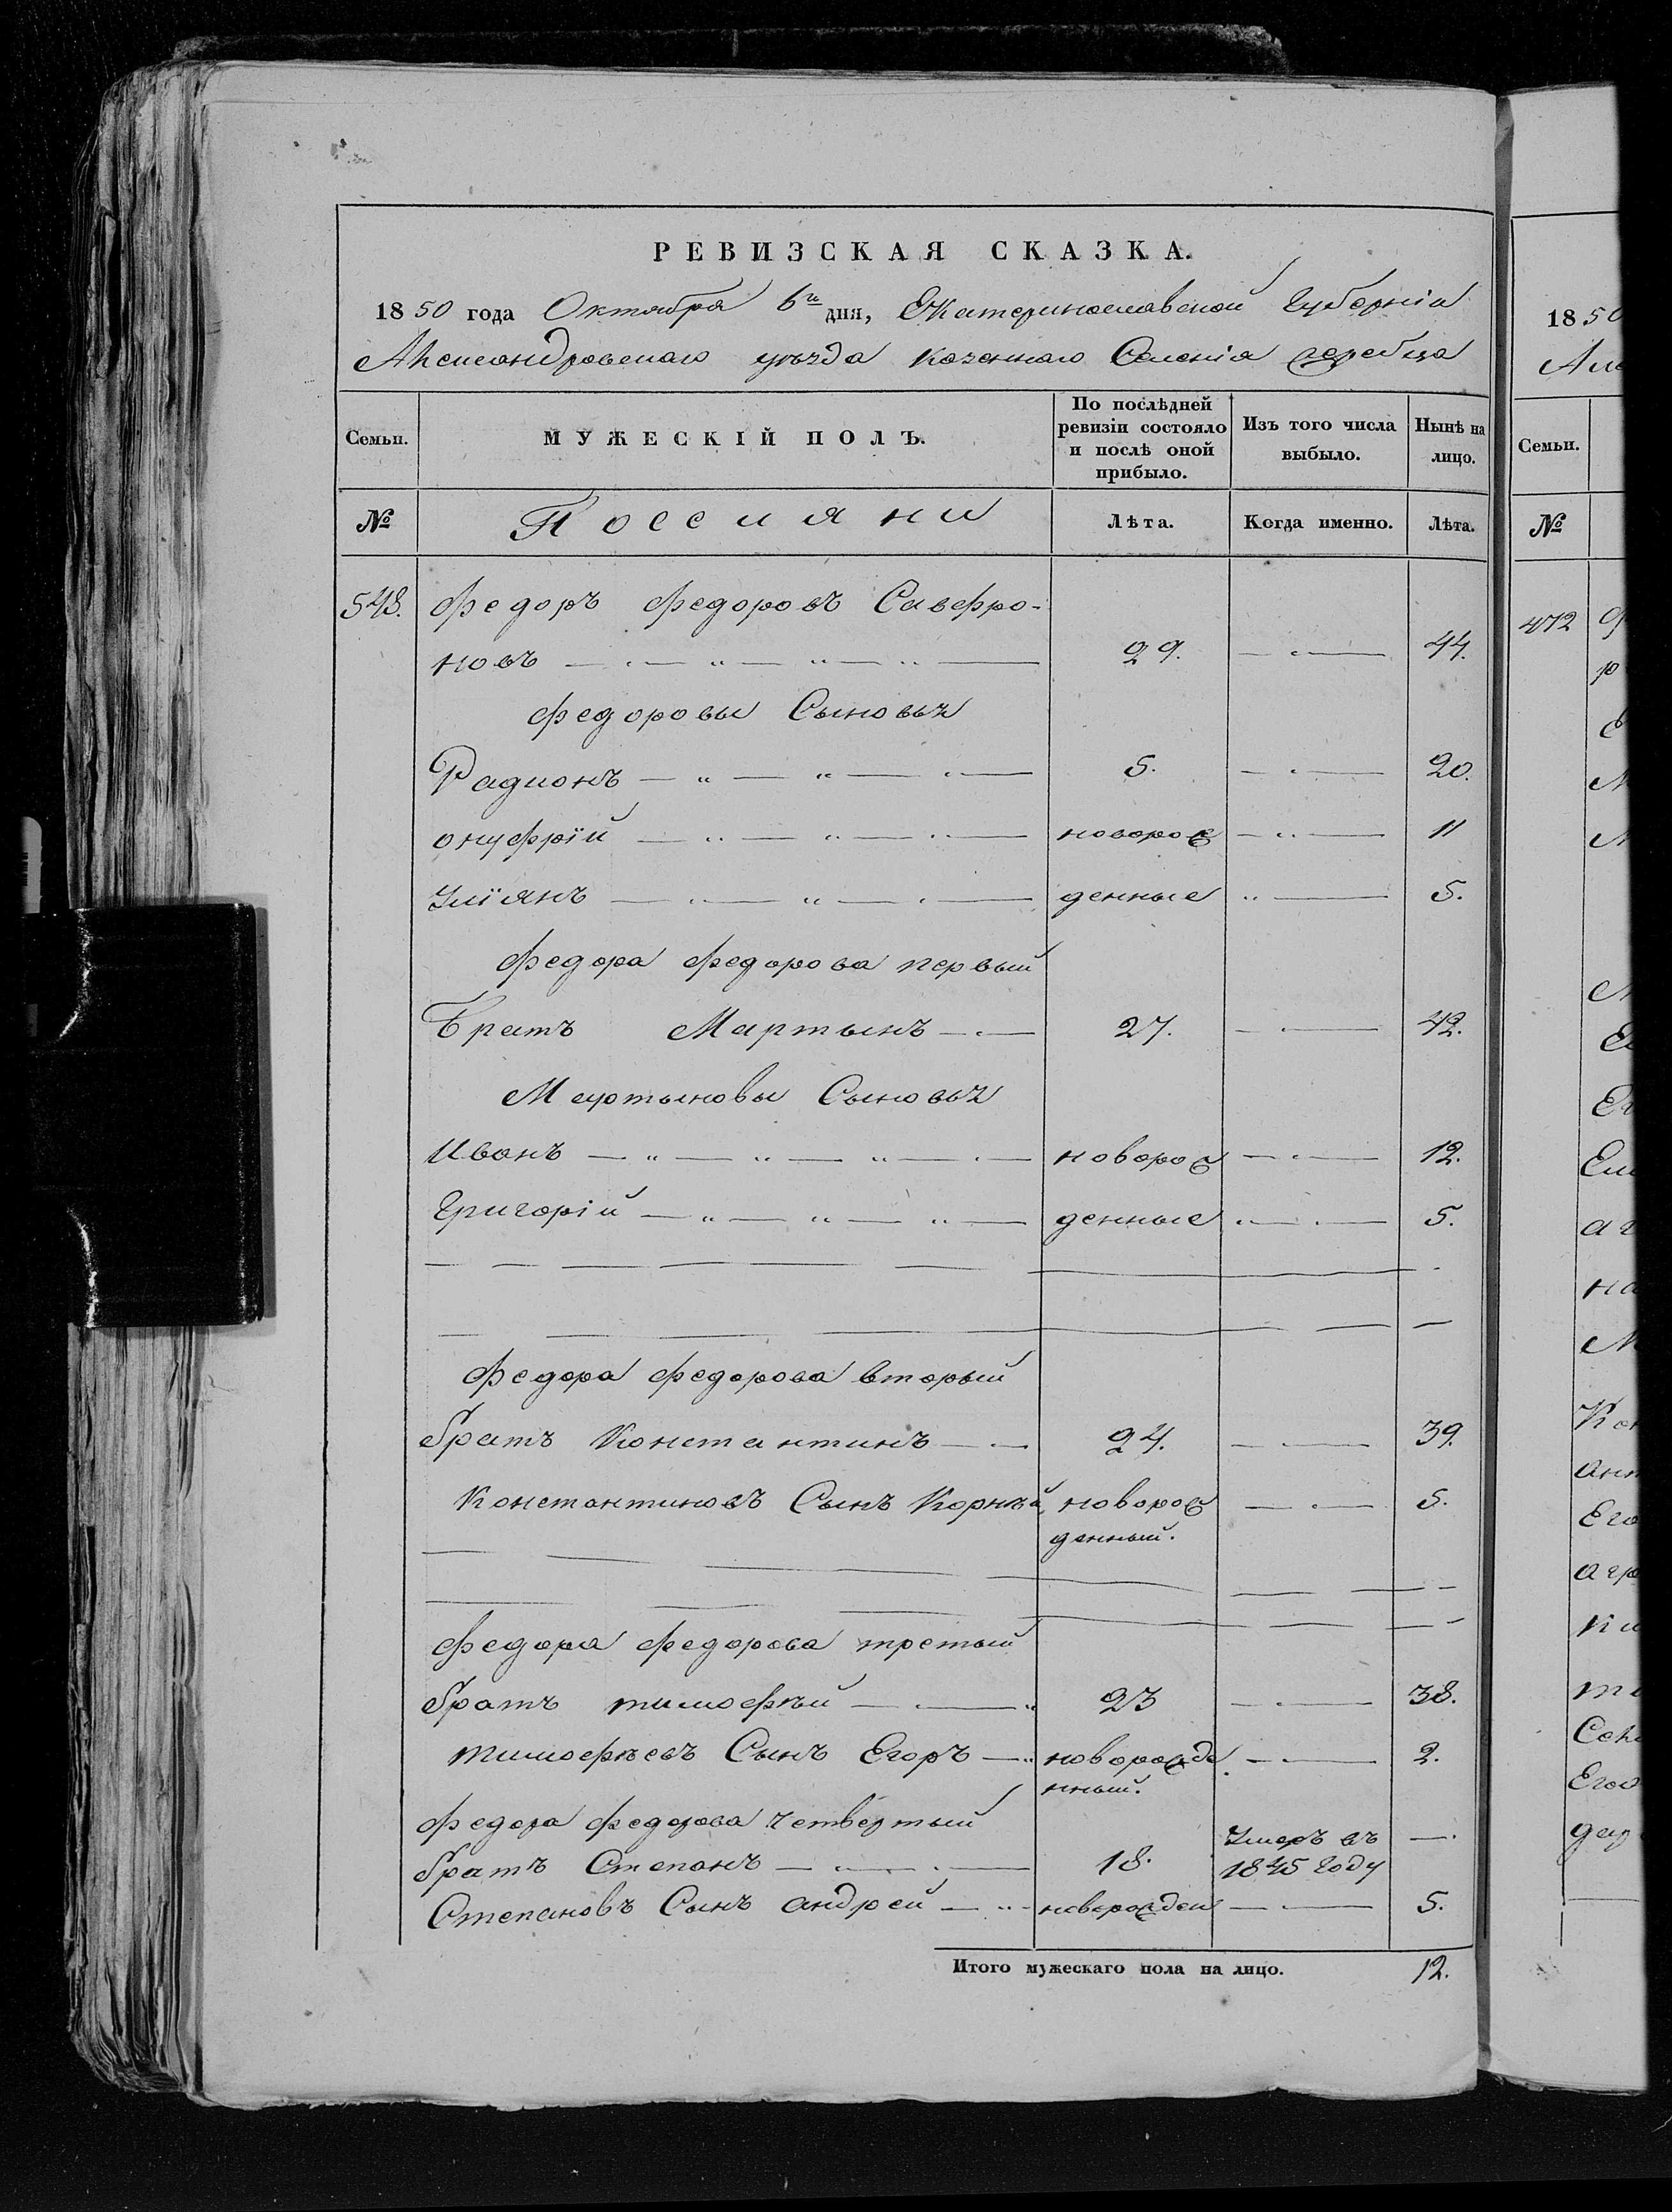 РЕВИЗСКАЯ СКАЗКА.
1850 года Октября 6го дня, Екатеринославской Губерніи
Александровскаго уѣзда казеннаго Селенія Жеребца
Семьи.
МУЖЕСКІЙ ПОЛЪ.
По послѣдней ревизіи состояло и послѣ оной прибыло.
Изъ того числа выбыло.
Нынѣ на лицо.
№
Поселяни
Лѣта.
Когда именно.
Лѣта.
548. Федоръ Федоровъ Сафро-
новъ 29. 44.
Федоровы Сыновья
Радионъ 5. 20.
онуфрій новорож 11
Уліянъ денные 5.
Федора Федорова первый
Братъ Мартынъ 27. 42.
Мартыновы Сыновья
Иванъ новорож 12.
Григорій денные 5.
Федора Федорова вторый
братъ Константинъ 24. 39.
Константиновъ Сынъ Корнѣй новорож 5.
денный.
Федора Федорова третый
братъ тимофѣй 23 38.
тимофѣевъ Сынъ Егоръ новорожде 2.
нный.
Федора Федорова четвертый
братъ Степанъ 18. Умеръ въ 1845 году
Степановъ Сынъ андрей новорожден 5.
Итого мужескаго пола на лицо. 12.
1850
Семьи.
№
472